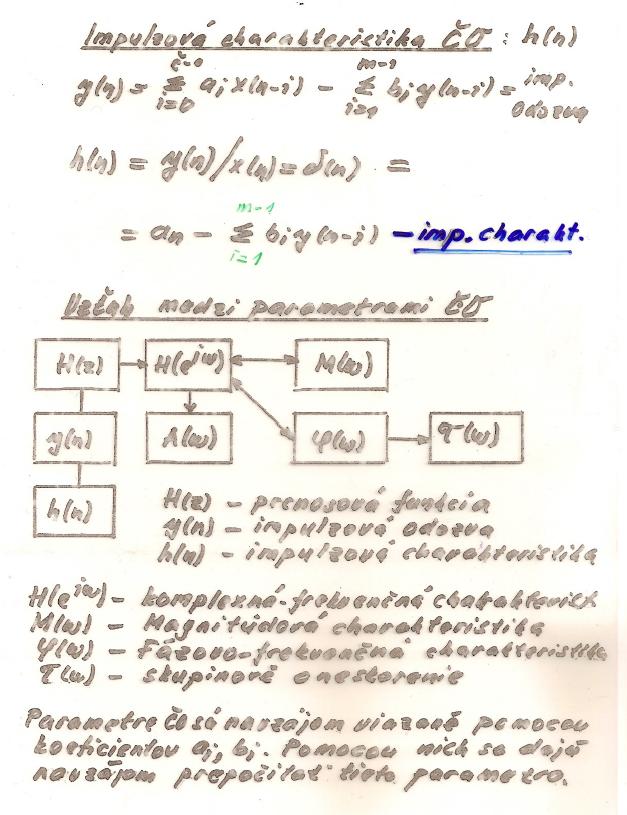 Impulzová charakteristika ČO : h(n)
y(n) = Σ_{i=0}^{č-1} aᵢ x(n-i) − Σ_{i=1}^{m-1} bᵢ y(n-i) = imp. odozva
h(n) = y(n)/x(n) = δ(n) =
= aₙ − Σ_{i=1}^{m-1} bᵢ y(n-i) – imp. charakt.
Vzťah medzi parametrami ČO
H(z) H(e^{jω}) M(ω)
y(n) A(ω) φ(ω) τ(ω)
h(n)
H(z) – prenosová funkcia
y(n) – impulzová odozva
h(n) – impulzová charakteristika
H(e^{jω}) – komplexná frekvenčná charakterist
M(ω) – Magnitúdová charakteristika
φ(ω) – Fázovo-frekvenčná charakteristika
τ(ω) – skupinové oneskorenie
Parametre ČO sú navzájom viazané pomocou
koeficientov aᵢ, bᵢ. Pomocou nich sa dajú
navzájom prepočítať tieto parametre.